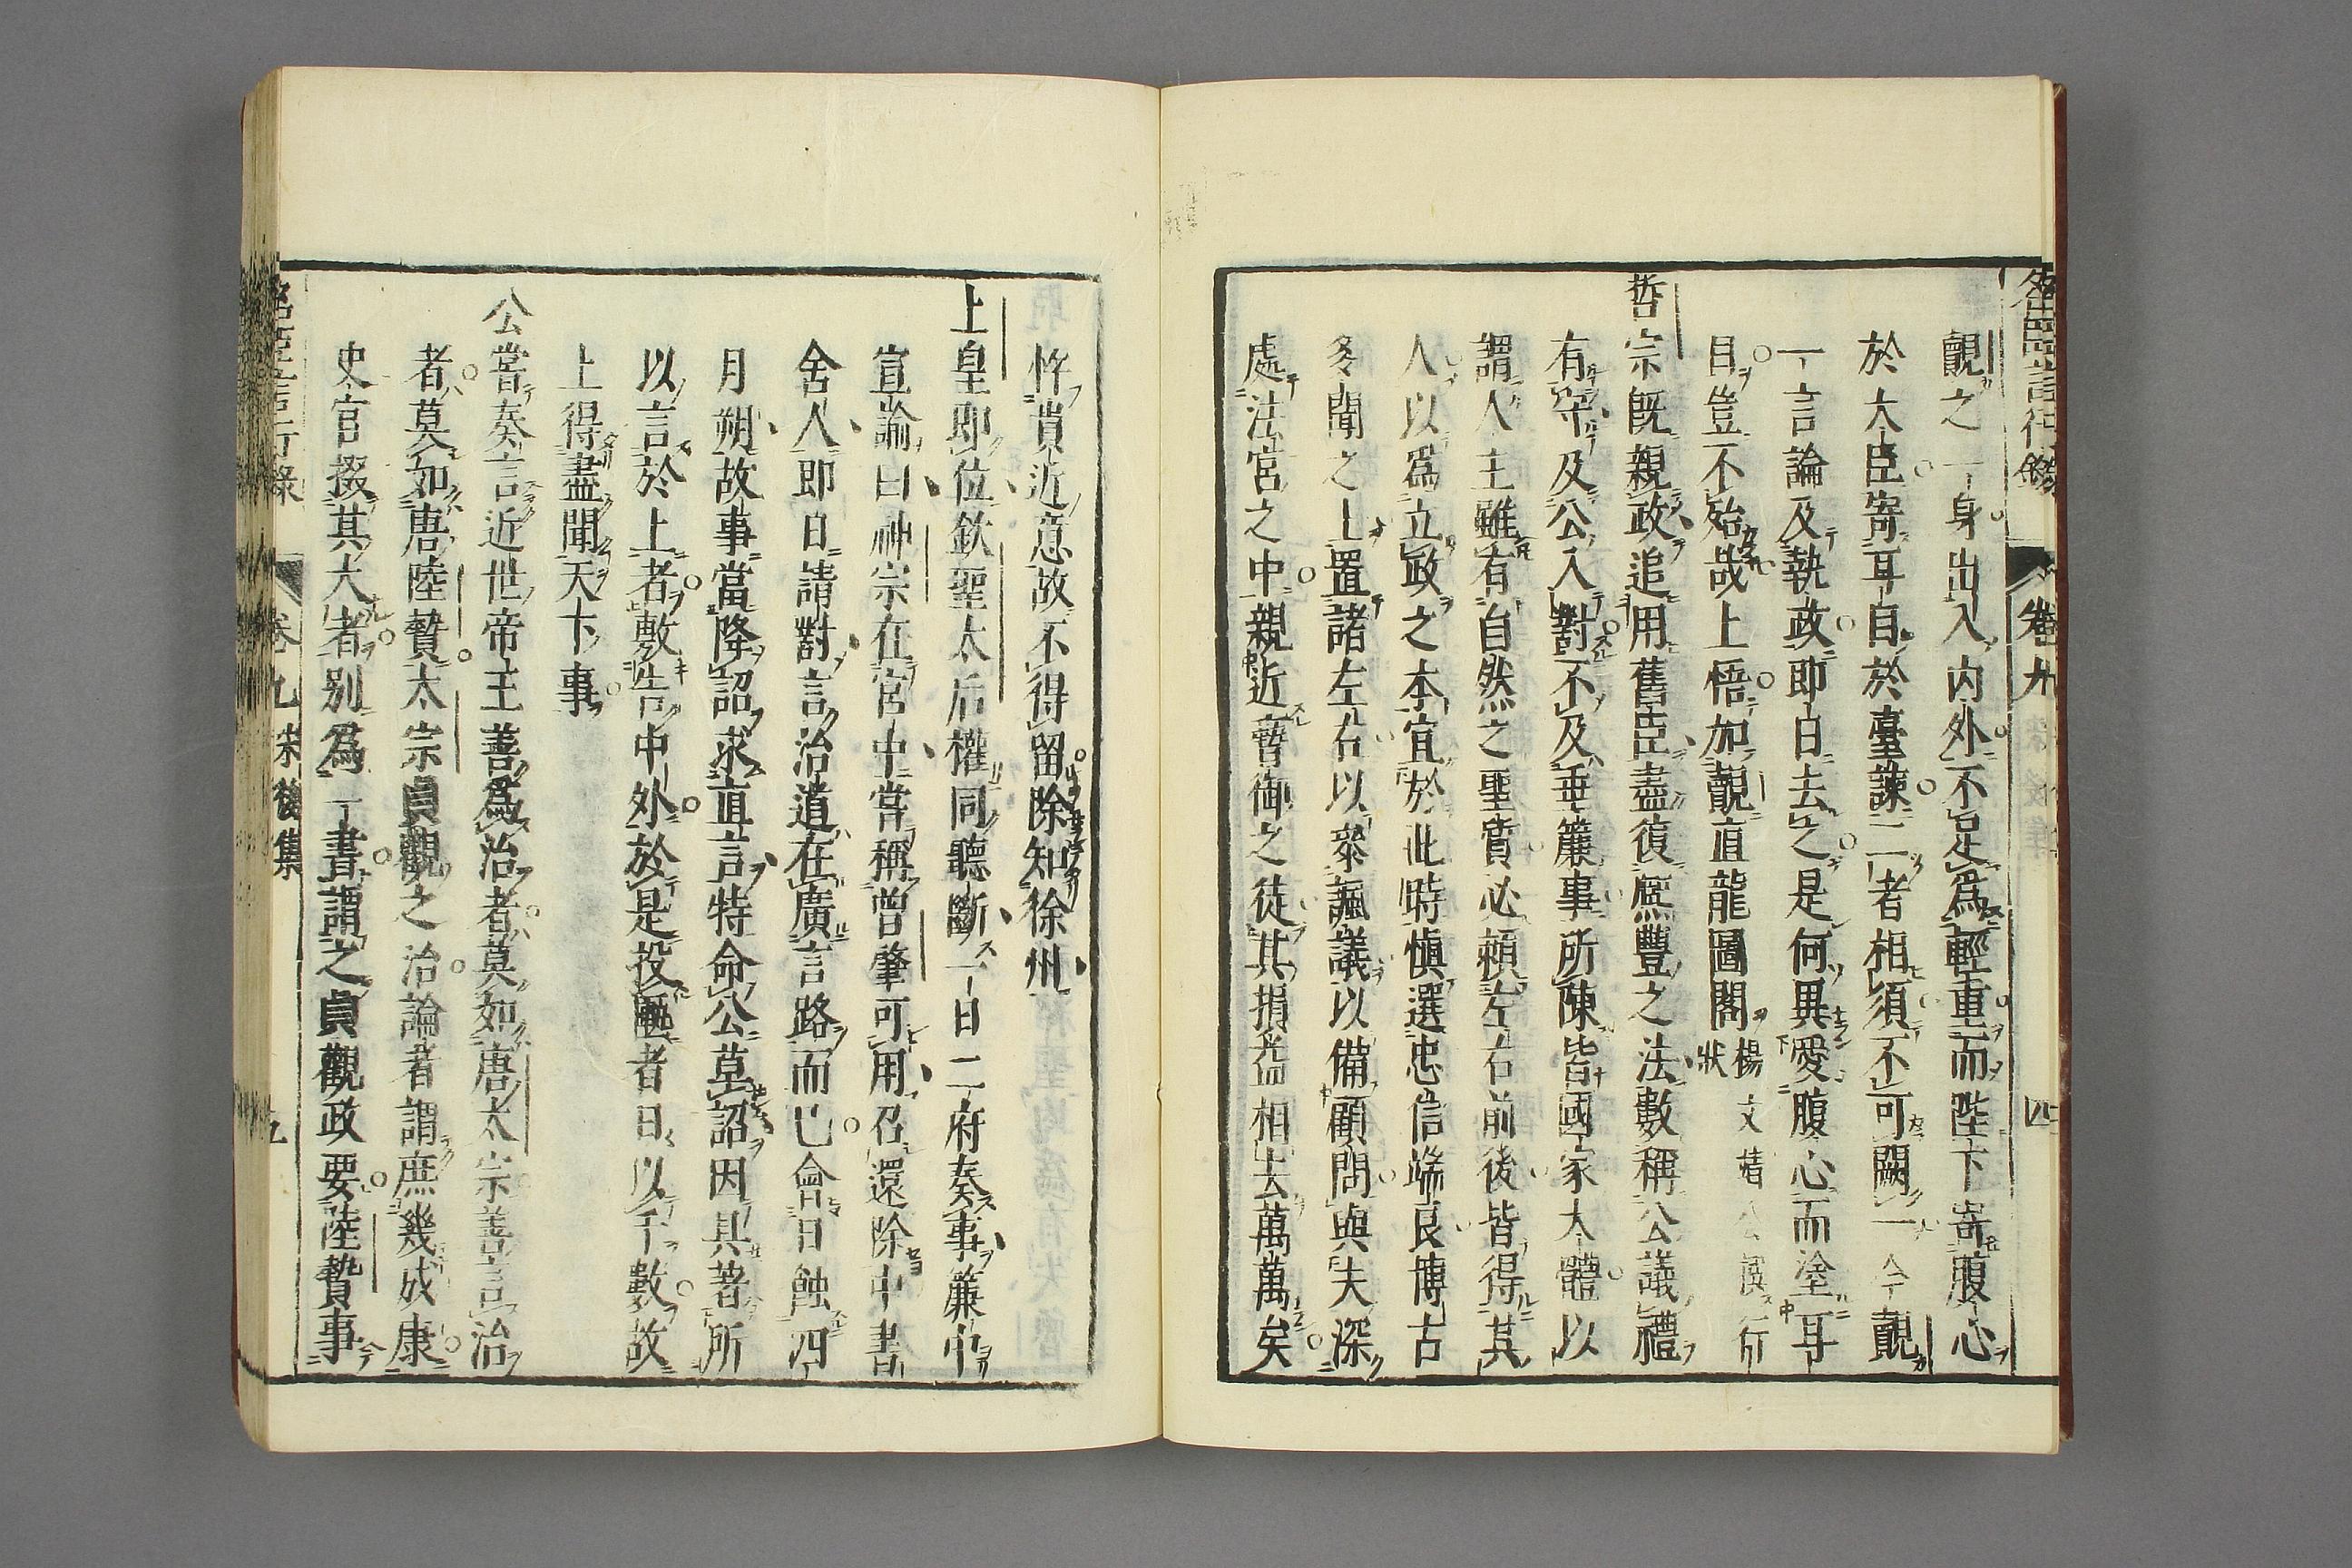 名臣言行錄 卷九 四
覿之一身出入內外不足爲輕重而陛下寄腹心
於大臣寄耳目於臺諫二者相須不可闕一今覿
一言論及執政卽日去之是何異愛腹心而塗耳
目豈不殆哉上悟加覿直龍圖閣楊文靖公撰行狀
哲宗旣親政追用舊臣盡復熈豐之法數稱公議禮
有守及公入對不及垂簾事所陳皆國家大體以
謂人主雖有自然之聖質必賴左右前後皆得其
人以爲立政之本宜於此時愼選忠信端良博古
多聞之士置諸左右以參諷議以備顧問與夫深
處法宮之中親近暬御之徒其損益相去萬萬矣
忤貴近意故不得留除知徐州
上皇卽位欽聖太后權同聽斷一日二府奏事簾中
宣諭曰神宗在宮中嘗稱曾肇可用召還除中書
舍人卽日請對言治道在廣言路而已會日蝕四
月朔故事當降詔求直言特命公草詔因具著所
以言於上者敷告中外於是投匭者日以千數故
上得盡聞天下事
公嘗奏言近世帝王善爲治者莫如唐太宗善言治
者莫如唐陸贄太宗貞觀之治論者謂庶幾成康
史官掇其大者別爲一書謂之貞觀政要陸贄事
名臣言行錄 卷九 宋後集 五